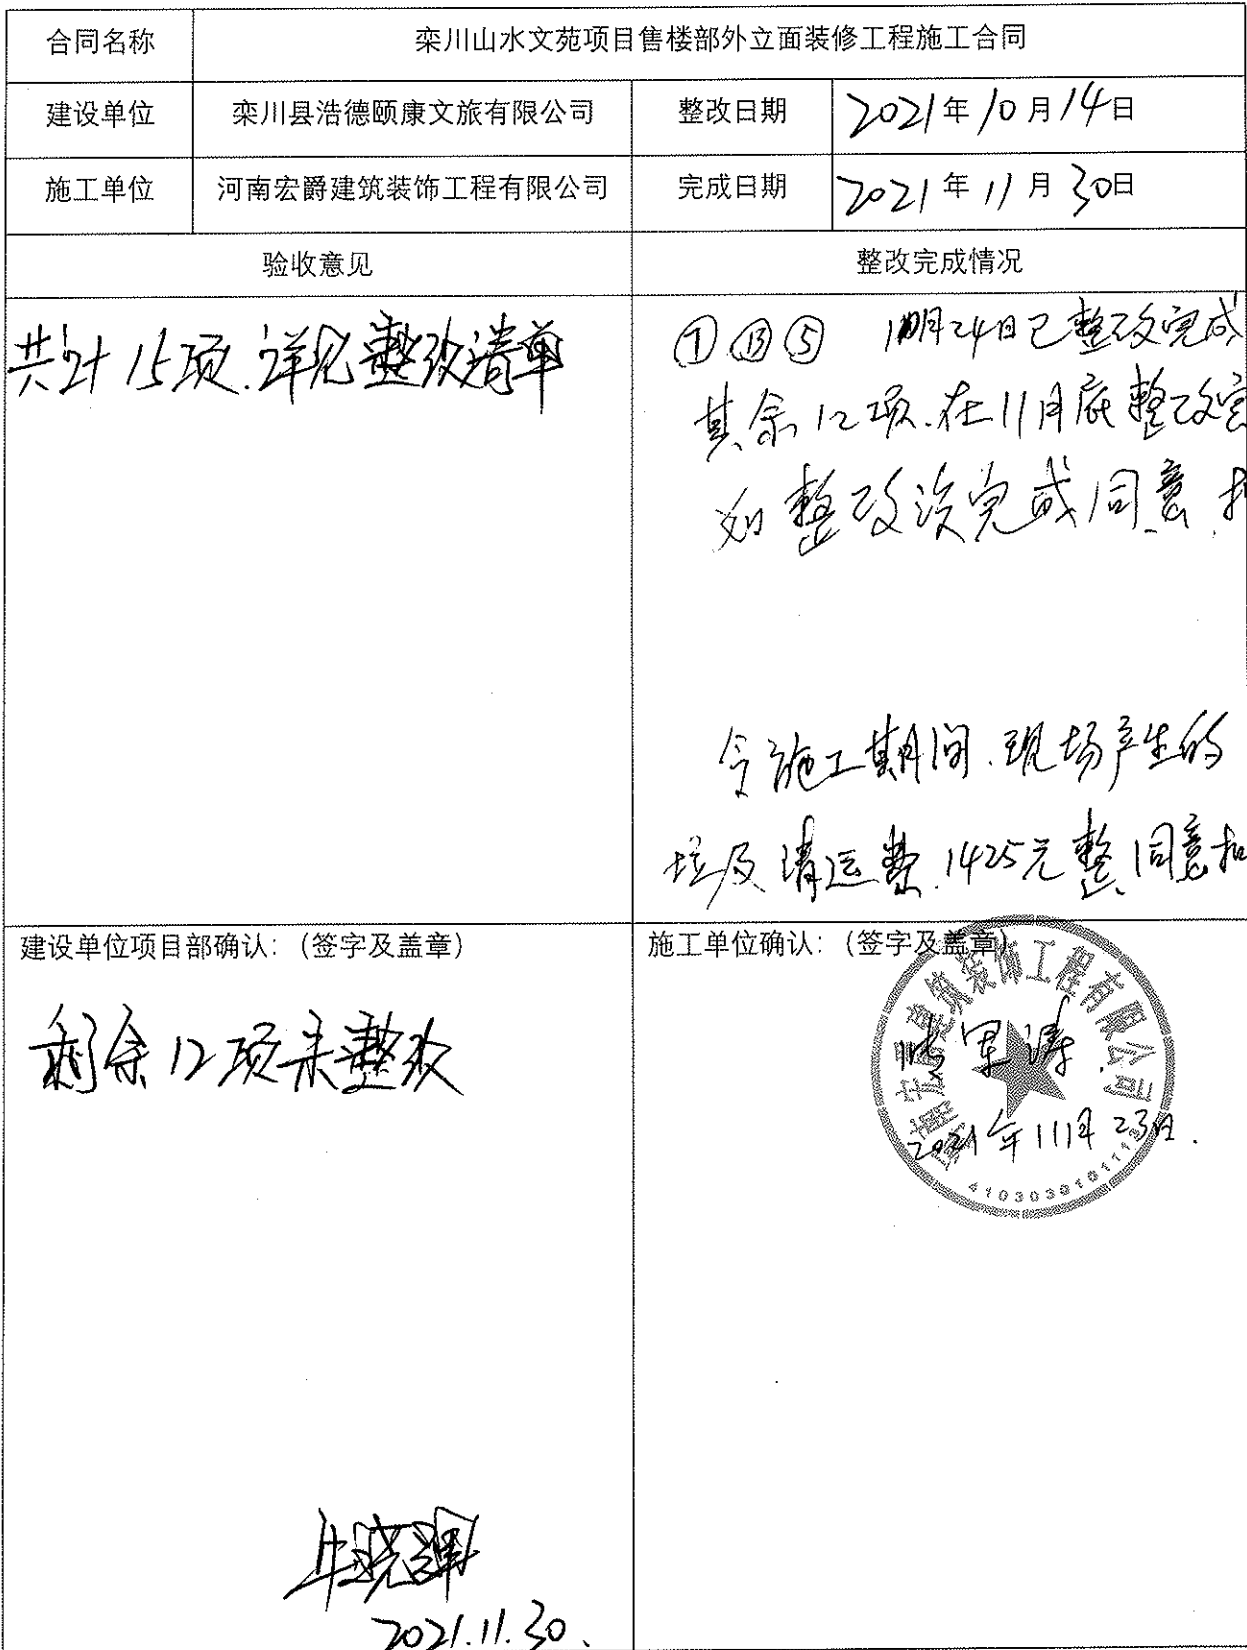 合同名称 栾川山水文苑项目售楼部外立面装修工程施工合同
建设单位 栾川县浩德颐康文旅有限公司 整改日期 2021年10月14日
施工单位 河南宏爵建筑装饰工程有限公司 完成日期 2021年11月30日
验收意见 整改完成情况
共计15项.详见整改清单
① ⑬ ⑤ 月24日已整改完成
其余12项.在11月底整改完
如整改没完成同意
令施工期间.现场产生的
垃圾清运费.1425元整.同意扣
建设单位项目部确认：（签字及盖章）
剩余12项未整改
牛晓辉
2021.11.30.
施工单位确认：（签字及盖章）
河南宏爵建筑装饰工程有限公司
军涛
2021年11月23日.